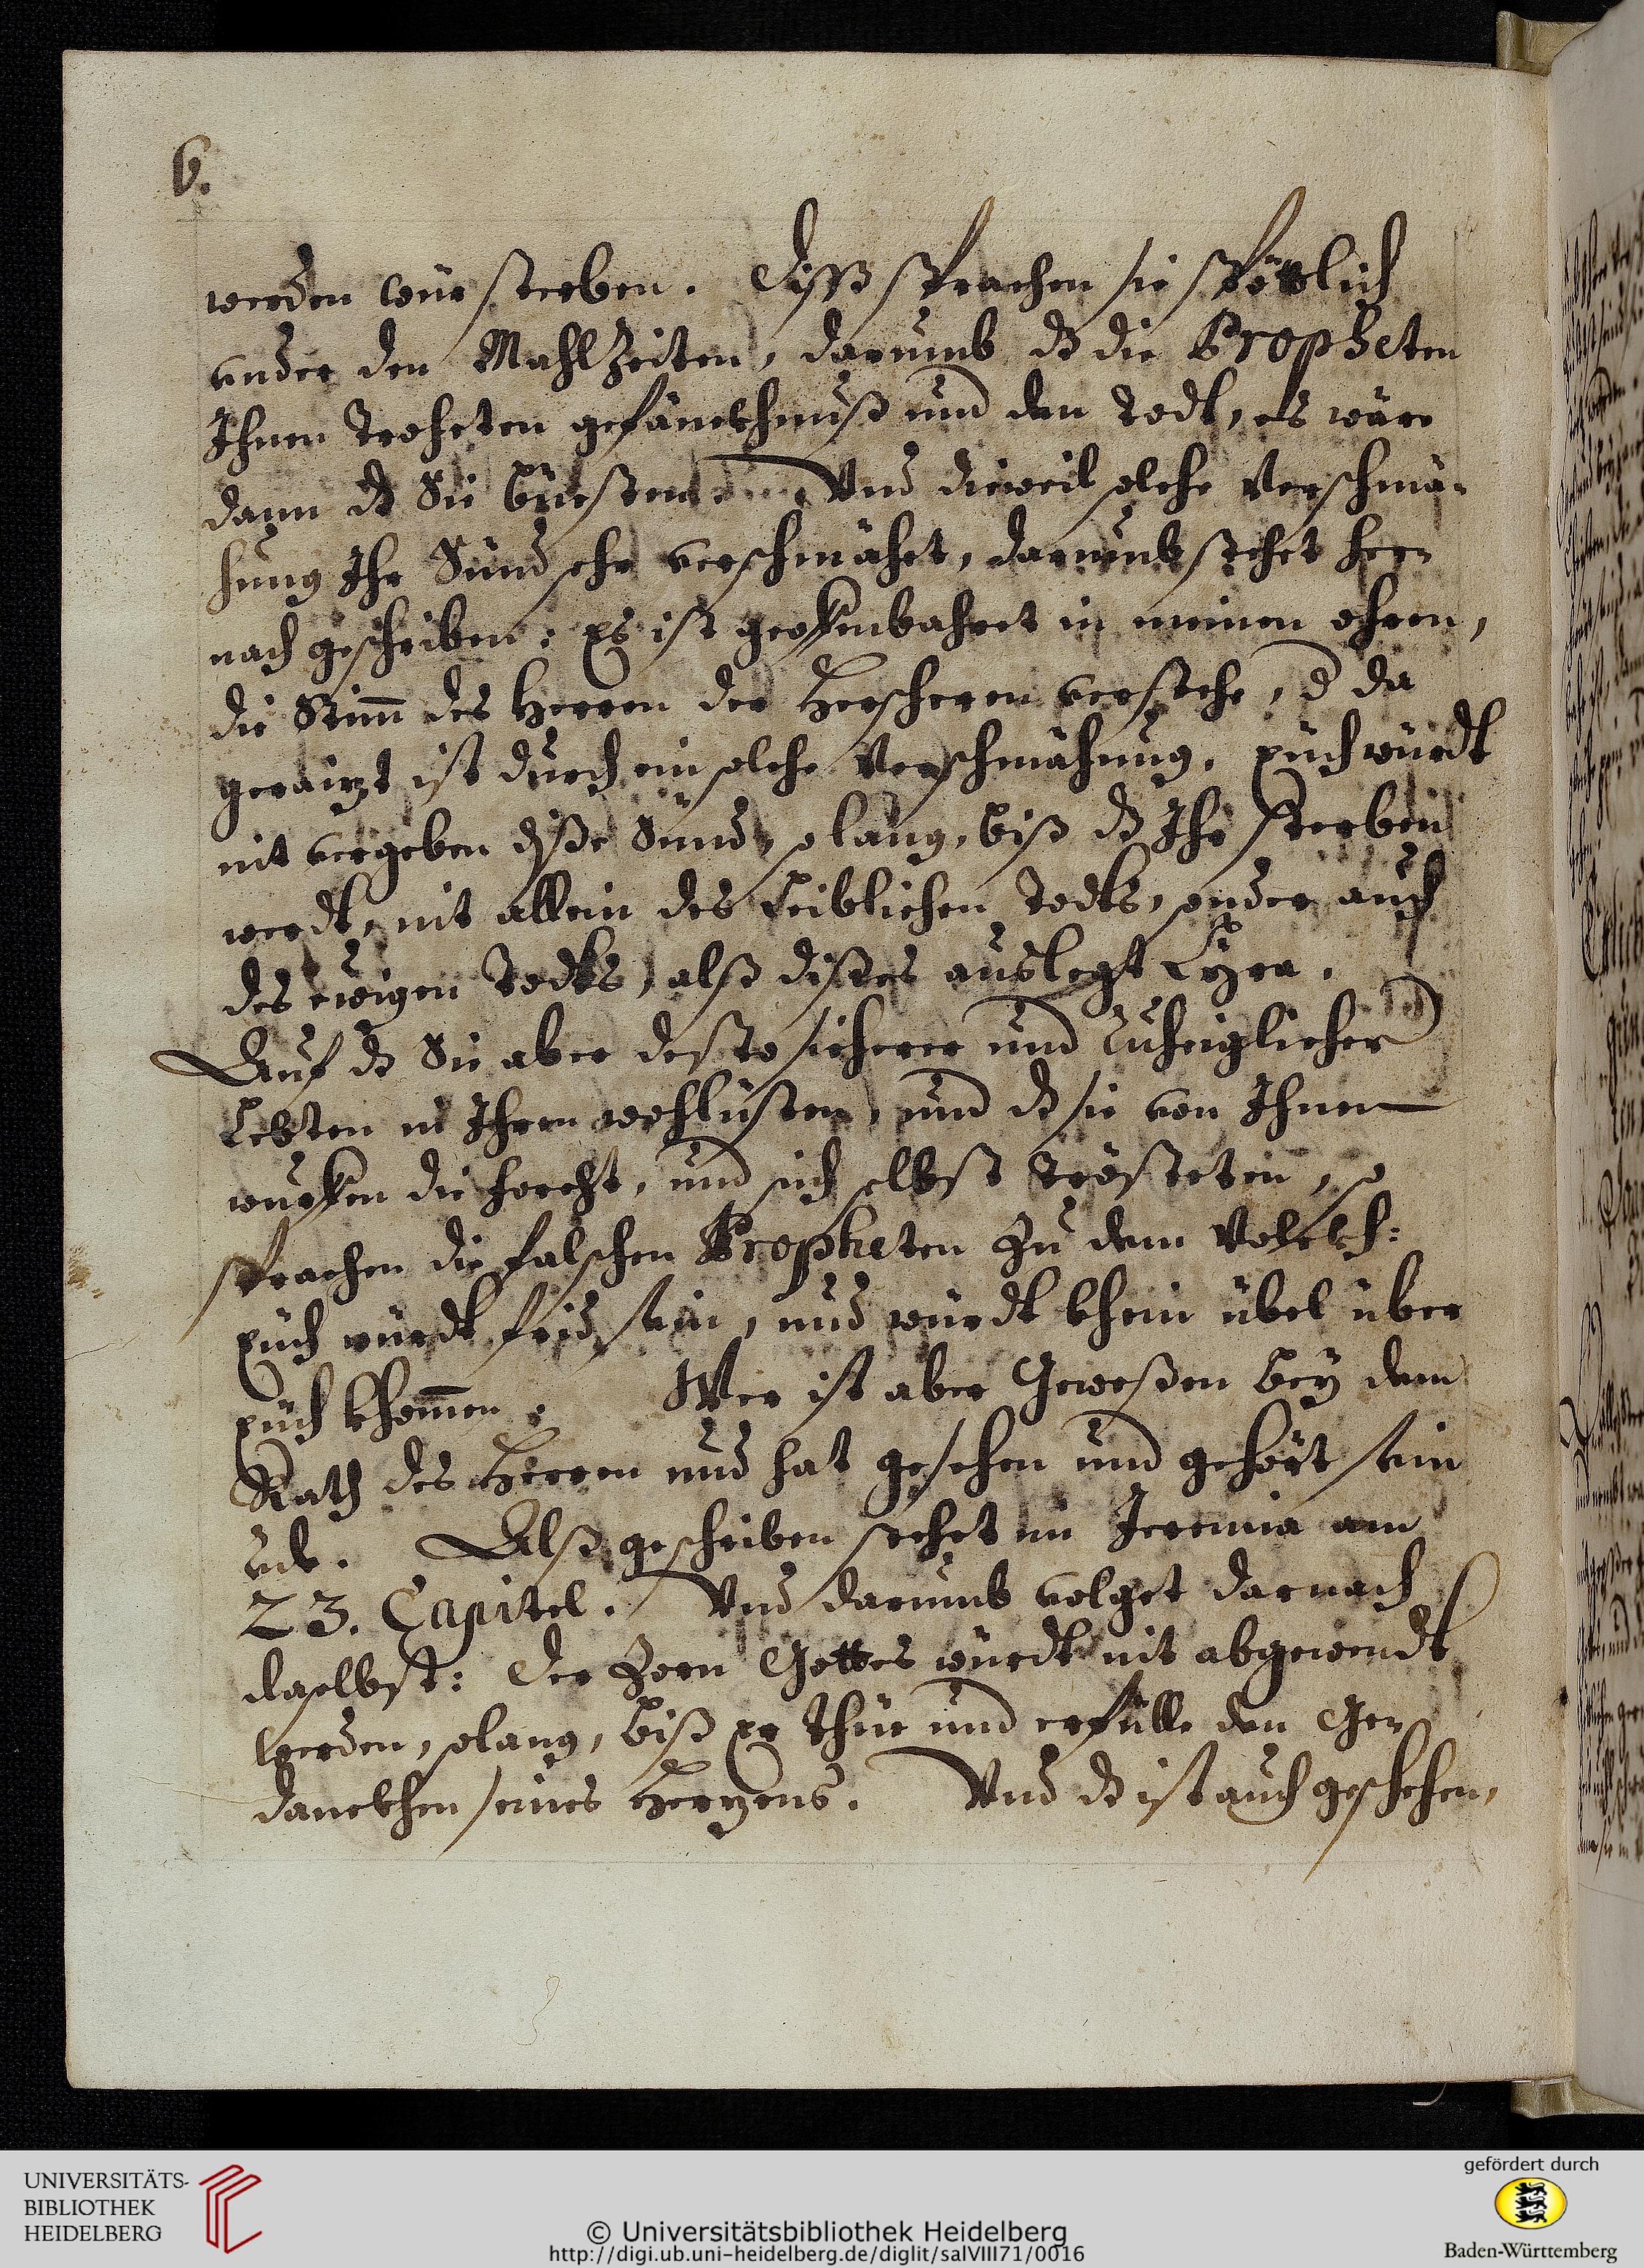 6.
werden wür sterben. Disß sprachen sie spöttlich
under den Mahlzeiten, darumb dz die Propheten
Ihnen troheten gefänckhnuß und den Todt, es wäre
dann dz Sie büesten. Und dieweil solche Verschmä-
hung Ihr Sünd sehr verschmähet, darumb stehet her-
nach geschriben: Es ist geoffenbahret in meinen ohren,
die Stim̃ des Herren der Herscharen verstehe, d da
geraizt ist durch ein solche Verschmähung. Euch würdt
nit vergeben diße Sünd, solang, biß dz Ihr sterben
werdt, nit allein des Leiblichen Todts, sonder auch
des ewigen Todts, alß dißes auslegt Lyra.
Auf dz Sie aber desto sicherer und Ruheiglicher
Lebten in Ihren wohllüsten, und dz sie von Ihnen
wurffen die forcht, und sich selbst trösteten, so
sprachen die falschen Propheten zu dem Volckh:
Euch würdt frid sein, und würdt khein übel über
Euch khom̃en. Wer ist aber Geweßen bey dem
Rath des Herren und hat gesehen und gehört sein
red. Alß geschriben stehet in Jeremia am
23. Capitel. Und darumb volget darnach
daselbst: Der Zorn Gottes würdt nit abgewendt
werden, solang, biß er thue und erfülle den Ge-
danckhen seines Herzens. Und dz ist auch geschehen,
UNIVERSITÄTS-
BIBLIOTHEK
HEIDELBERG
© Universitätsbibliothek Heidelberg
http://digi.ub.uni-heidelberg.de/diglit/salVIII71/0016
gefördert durch
Baden-Württemberg